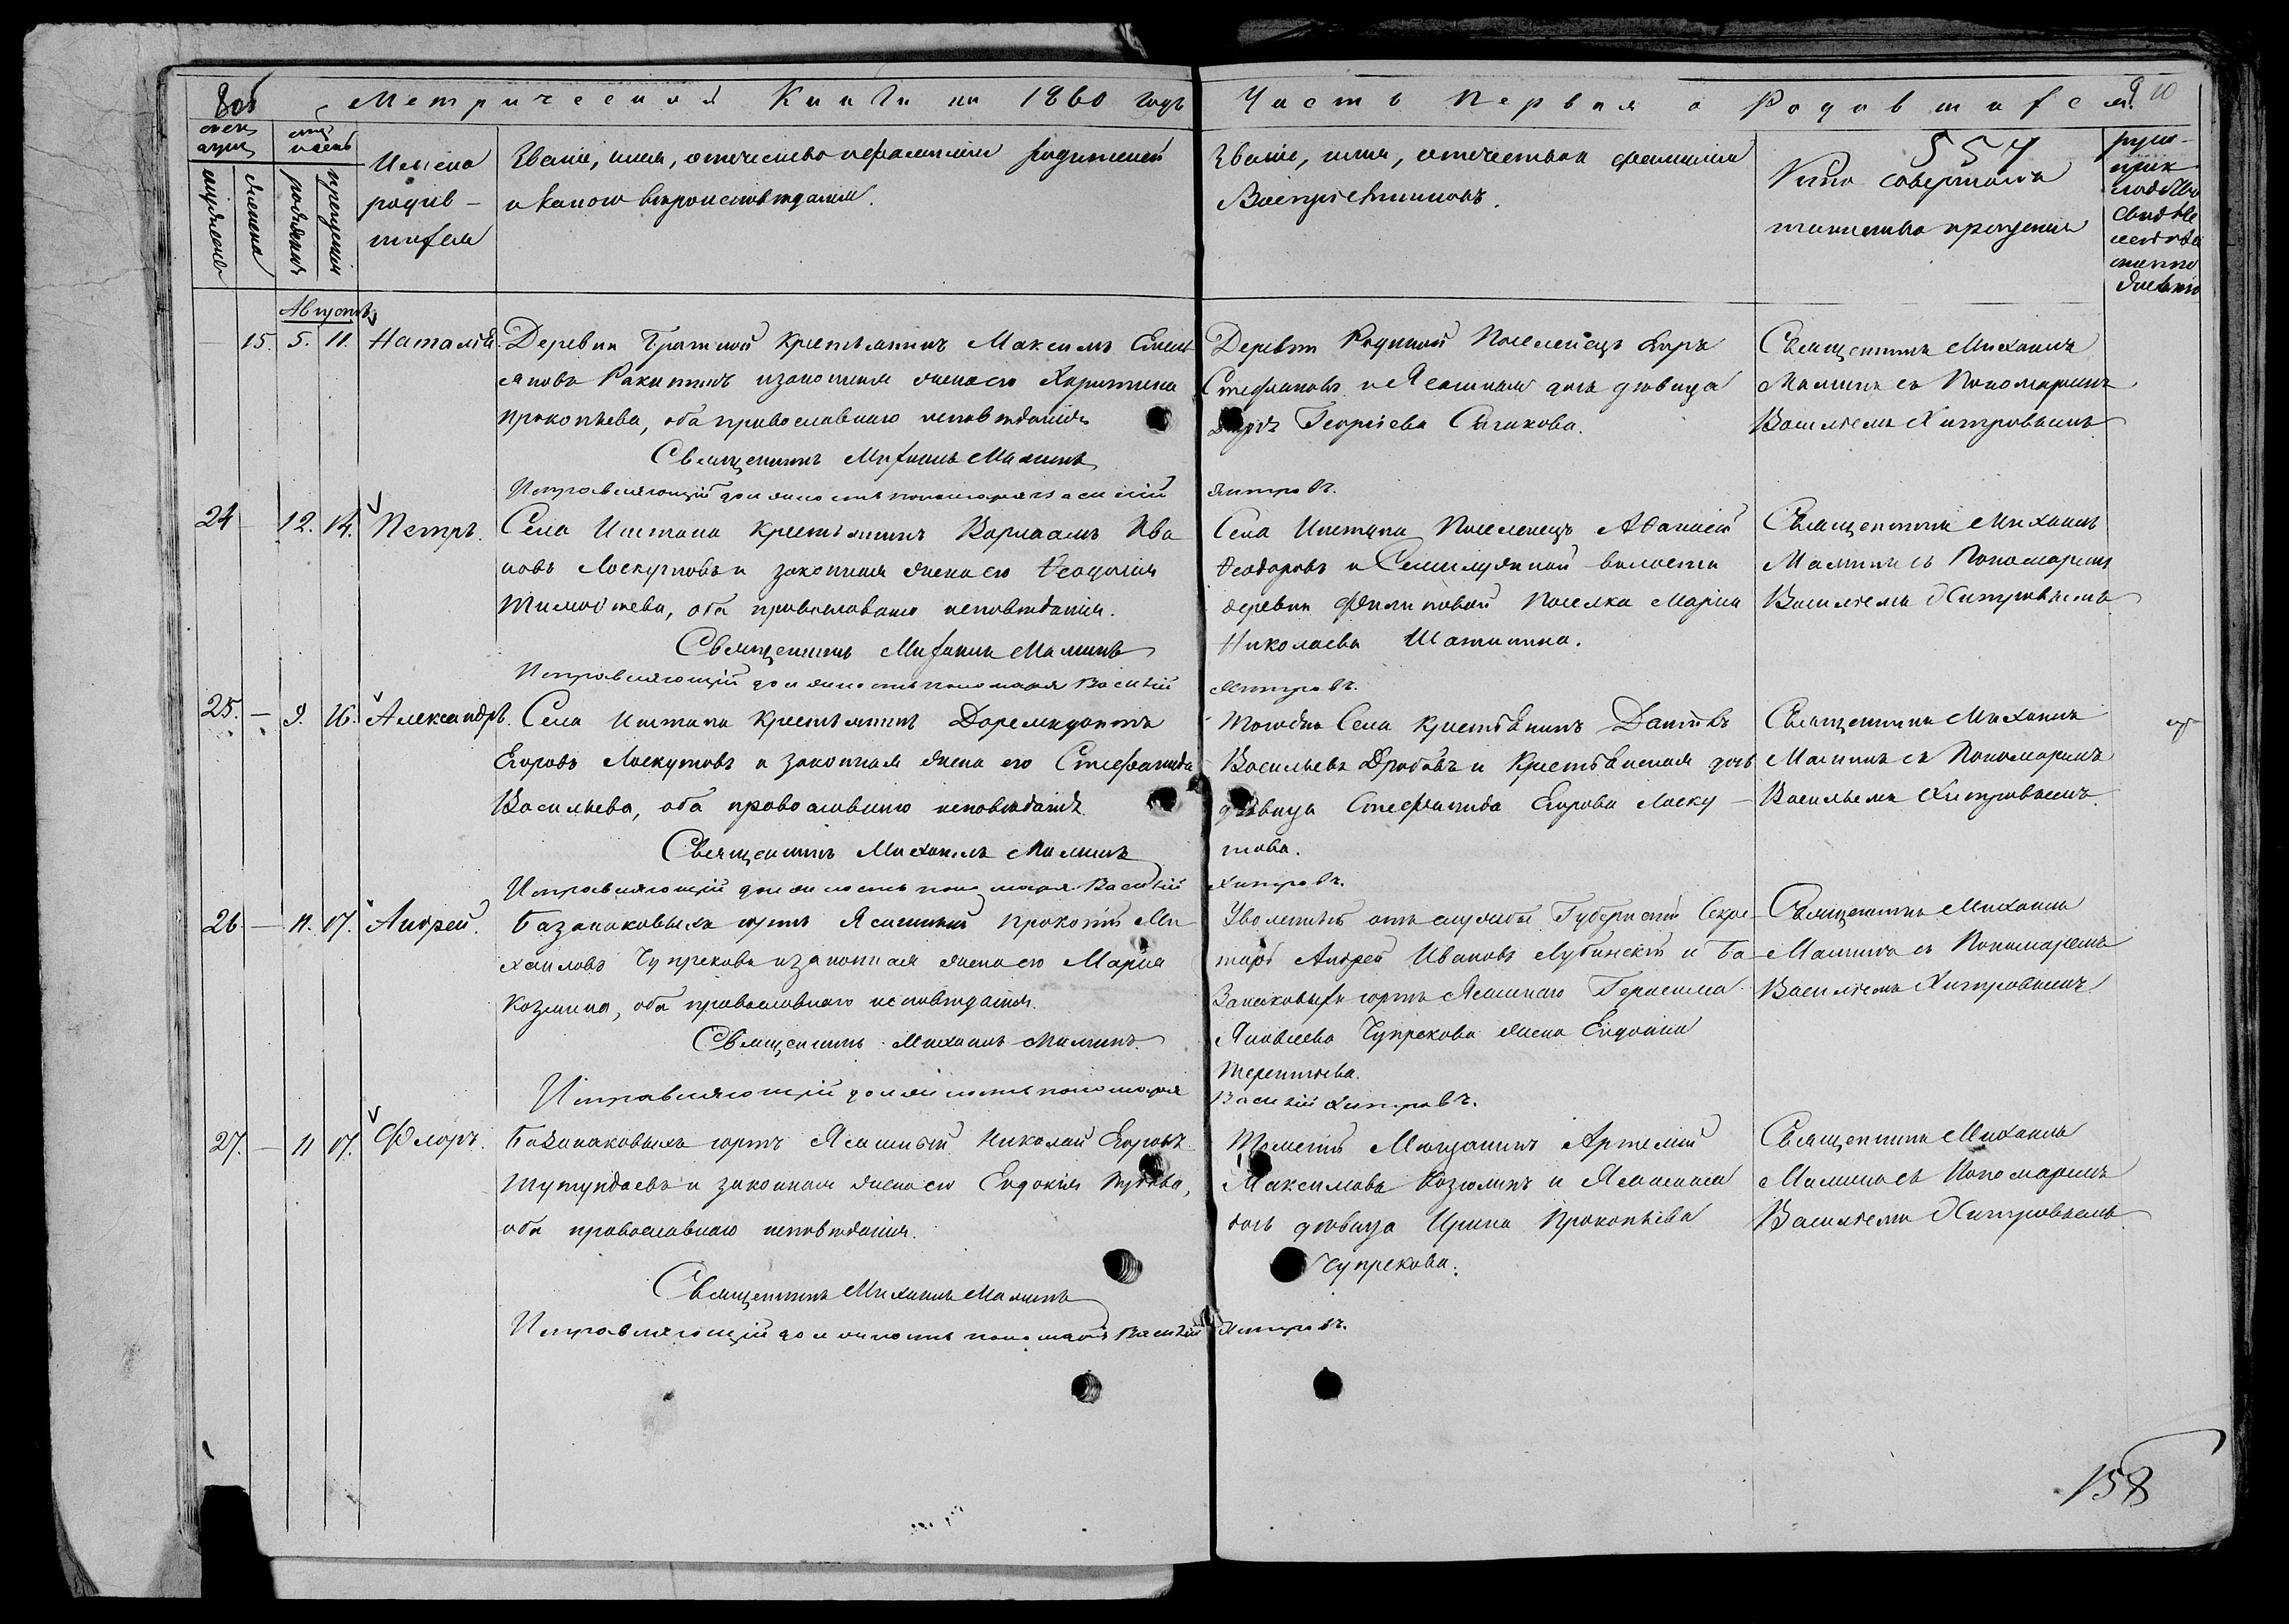 8об
Метрической Книги на 1860 годъ
Часть Первая о Родившихся.
9 10
557
счетъ
мѣс
мужеска
женска
рожденія
крещенія
Имена
родив-
шихся
Званіе, имя, отечество и фамилія родителей
и какого вѣроисповѣданія.
Званіе, имя, отечество и фамилія
Воспріемниковъ.
Кто совершалъ
таинство крещенія
руко-
прик
Августъ
15. 5. 11. Наталія.
Деревни крестьянинъ Максимъ Емель
яновъ Ракитинъ и законная жена его Харитина
Прокопьева, оба православнаго исповѣданія
Священникъ Михаилъ Малинъ
Исправляющій должность пономаря Василій
Деревни Поселенецъ
Стефановъ и дочь дѣвица
Георгіева
Хитровъ.
Священникъ Михаилъ
Малинъ съ Пономаремъ
Василіемъ Хитровымъ
24 - 12. 14. Петръ.
Села Иштана крестьянинъ Варлаамъ Ива
новъ Лоскутовъ и законная жена его Ѳеодосія
Тимоѳеева, оба православнаго исповѣданія.
Священникъ Михаилъ Малинъ
Исправляющій должность пономаря Василій
Села Иштана Поселенецъ Аѳанасій
Ѳеодоровъ и Семилужной волости
деревни Филиповой Поселка Марія
Николаева
Хитровъ.
Священникъ Михаилъ
Малинъ съ Пономаремъ
Василіемъ Хитровымъ
25. - 9. 16. Александръ.
Села Иштана крестьянинъ Доремидонтъ
Егоровъ Лоскутовъ и законная жена его Стефанида
Васильева, оба православнаго исповѣданія.
Священникъ Михаилъ Малинъ
Исправляющій должность пономаря Василій
Тогоже Села крестьянинъ
Васильевъ Дробовъ и Крестьянская дочь
дѣвица Стефанида Егорова Лоску-
това.
Хитровъ.
Священникъ Михаилъ
Малинъ съ Пономаремъ
Васильемъ Хитровымъ.
26 - 11. 17. Андрей.
Базанаковыхъ юртъ Ясашный Прокопій Ми
хаиловъ Чупрековъ и законная жена его Марія
Козмина, оба православнаго исповѣданія.
Священникъ Михаилъ Малинъ.
Исправляющій должность пономаря
Уволенный отъ службы Губернскій Секре-
тарь Андрей Ивановъ Лубинскій и Ба-
занаковыхъ юртъ Ясашнаго Герасима
Яковлева Чупрекова жена Евдокія
Терентьева.
Василій Хитровъ.
Священникъ Михаилъ
Малинъ съ Пономаремъ
Василіемъ Хитровымъ
27. - 11 17. Флоръ.
Базанаковыхъ юртъ Ясашный Николай Егоровъ
Тутундаевъ и законная жена его Евдокія
оба православнаго исповѣданія.
Священникъ Михаилъ Малинъ
Исправляющій должность пономаря Василій
Томскій Мѣщанинъ Артемій
Максимовъ Козминъ и Ясашная
дочь дѣвица Ирина Прокопьева
Чупрекова.
Хитровъ.
Священникъ Михаилъ
Малинъ съ Пономаремъ
Василіемъ Хитровымъ
158